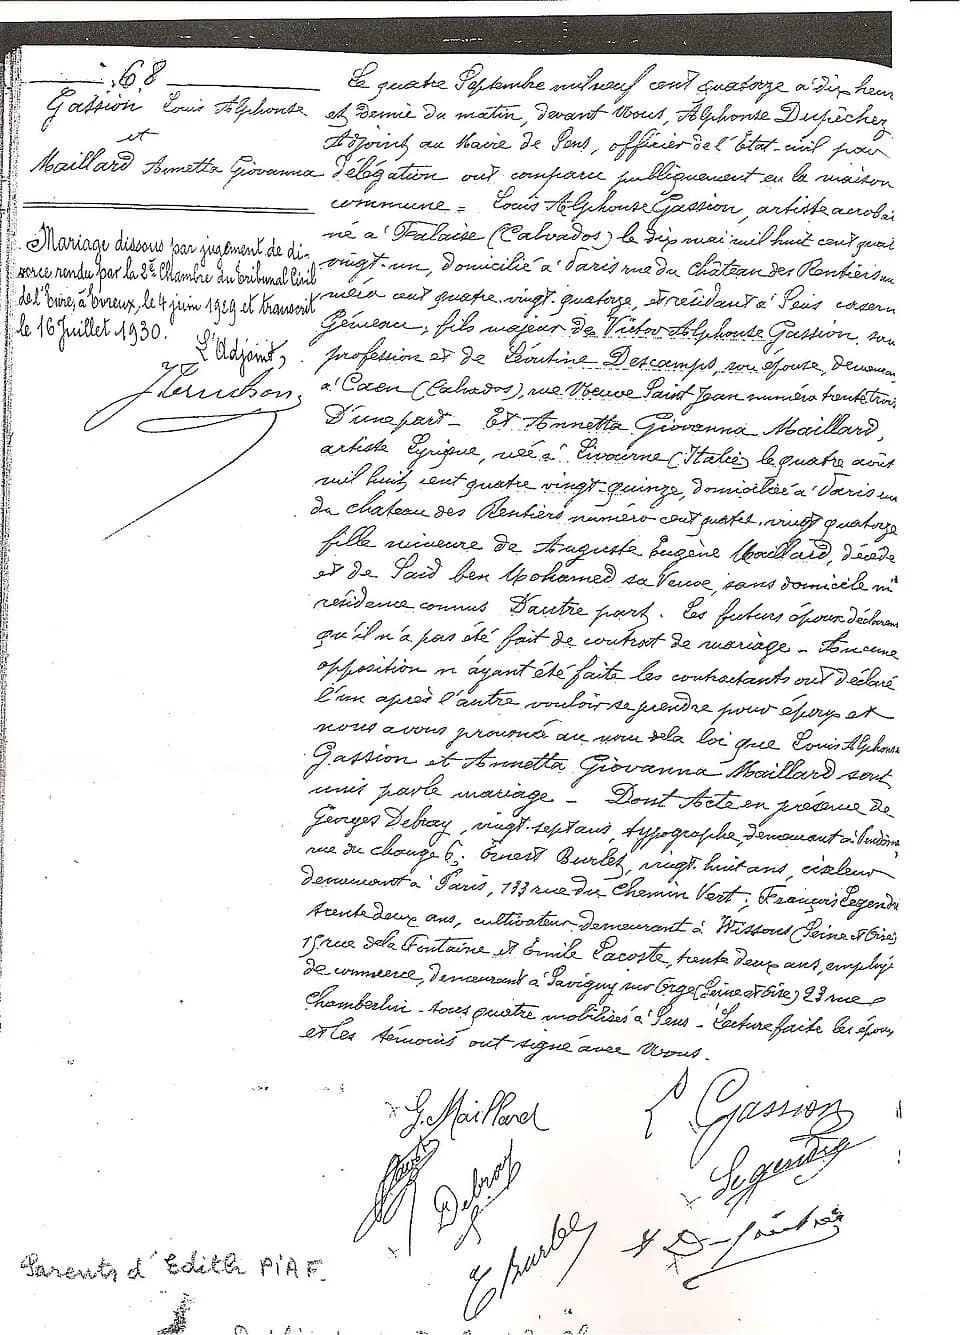 68
Gassion Louis Alphonse
et
Maillard Annetta Giovanna
Mariage dissous par jugement de di-
vorce rendu par la 2e Chambre du Tribunal Civil
de l'Eure, à Evreux, le 4 juin 1929 et transcrit
le 16 Juillet 1930.
L'Adjoint,
Le quatre Septembre mil neuf cent quatorze à dix heur
et demie du matin, devant Nous, Alphonse Dupêchez
Adjoint au Maire de Sens, officier de l'Etat-civil par
délégation ont comparu publiquement en la maison
commune = Louis Alphonse Gassion, artiste acroba
né à Falaise (Calvados) le dix mai mil huit cent quat
vingt-un, domicilié à Paris rue du Château des Rentiers nu
méro cent quatre-vingt-quatorze, et résidant à Sens casern
Gémeau, fils majeur de Victor Alphonse Gassion, san
profession et de Léontine Descamps, son épouse, demeuran
à Caen (Calvados), rue Neuve Saint Jean numéro trente trois
D'une part - Et Annetta Giovanna Maillard,
artiste Lyrique, née à Livourne (Italie) le quatre août
mil huit cent quatre vingt-quinze, domiciliée à Paris rue
du chateau des Rentiers numéro cent quatre-vingt quatorze
fille mineure de Auguste Eugène Maillard, décédé
et de Saïd ben Mohamed sa Veuve, sans domicile ni
résidence connus D'autre part. Les futurs époux déclarent
qu'il n'a pas été fait de contrat de mariage - Aucune
opposition n'ayant été faite les contractants ont déclaré
l'un après l'autre vouloir se prendre pour époux et
nous avons prononcé au nom de la loi que Louis Alphonse
Gassion et Annetta Giovanna Maillard sont
unis par le mariage - Dont Acte en présence de
Georges Debray, vingt-sept ans, typographe, demeurant à Vendôme
rue du change 6; Ernest Burlet, vingt-huit ans, ciseleur
demeurant à Paris, 133 rue du Chemin Vert; François Legendre
trente deux ans, cultivateur demeurant à Wissous (Seine et Oise)
15 rue de la Fontaine et Emile Lacoste, trente deux ans, employé
de commerce, demeurant à Savigny sur Orge (Seine et Oise) 23 rue
Chamberlin - tous quatre mobilisés à Sens - Lecture faite les époux
et les témoins ont signé avec Nous.
G. Maillard
L Gassion
Debray
Legendre
E Burlet
Parents d'Edith PIAF.